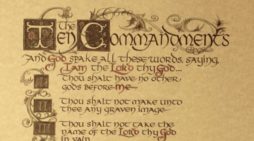 The
Ten Commandments
And God spake all these words, saying,
I am the Lord thy God...
Thou shalt have no other
gods before me
Thou shalt not make unto
thee any graven image
Thou shalt not take the
name of the Lord thy God
in vain